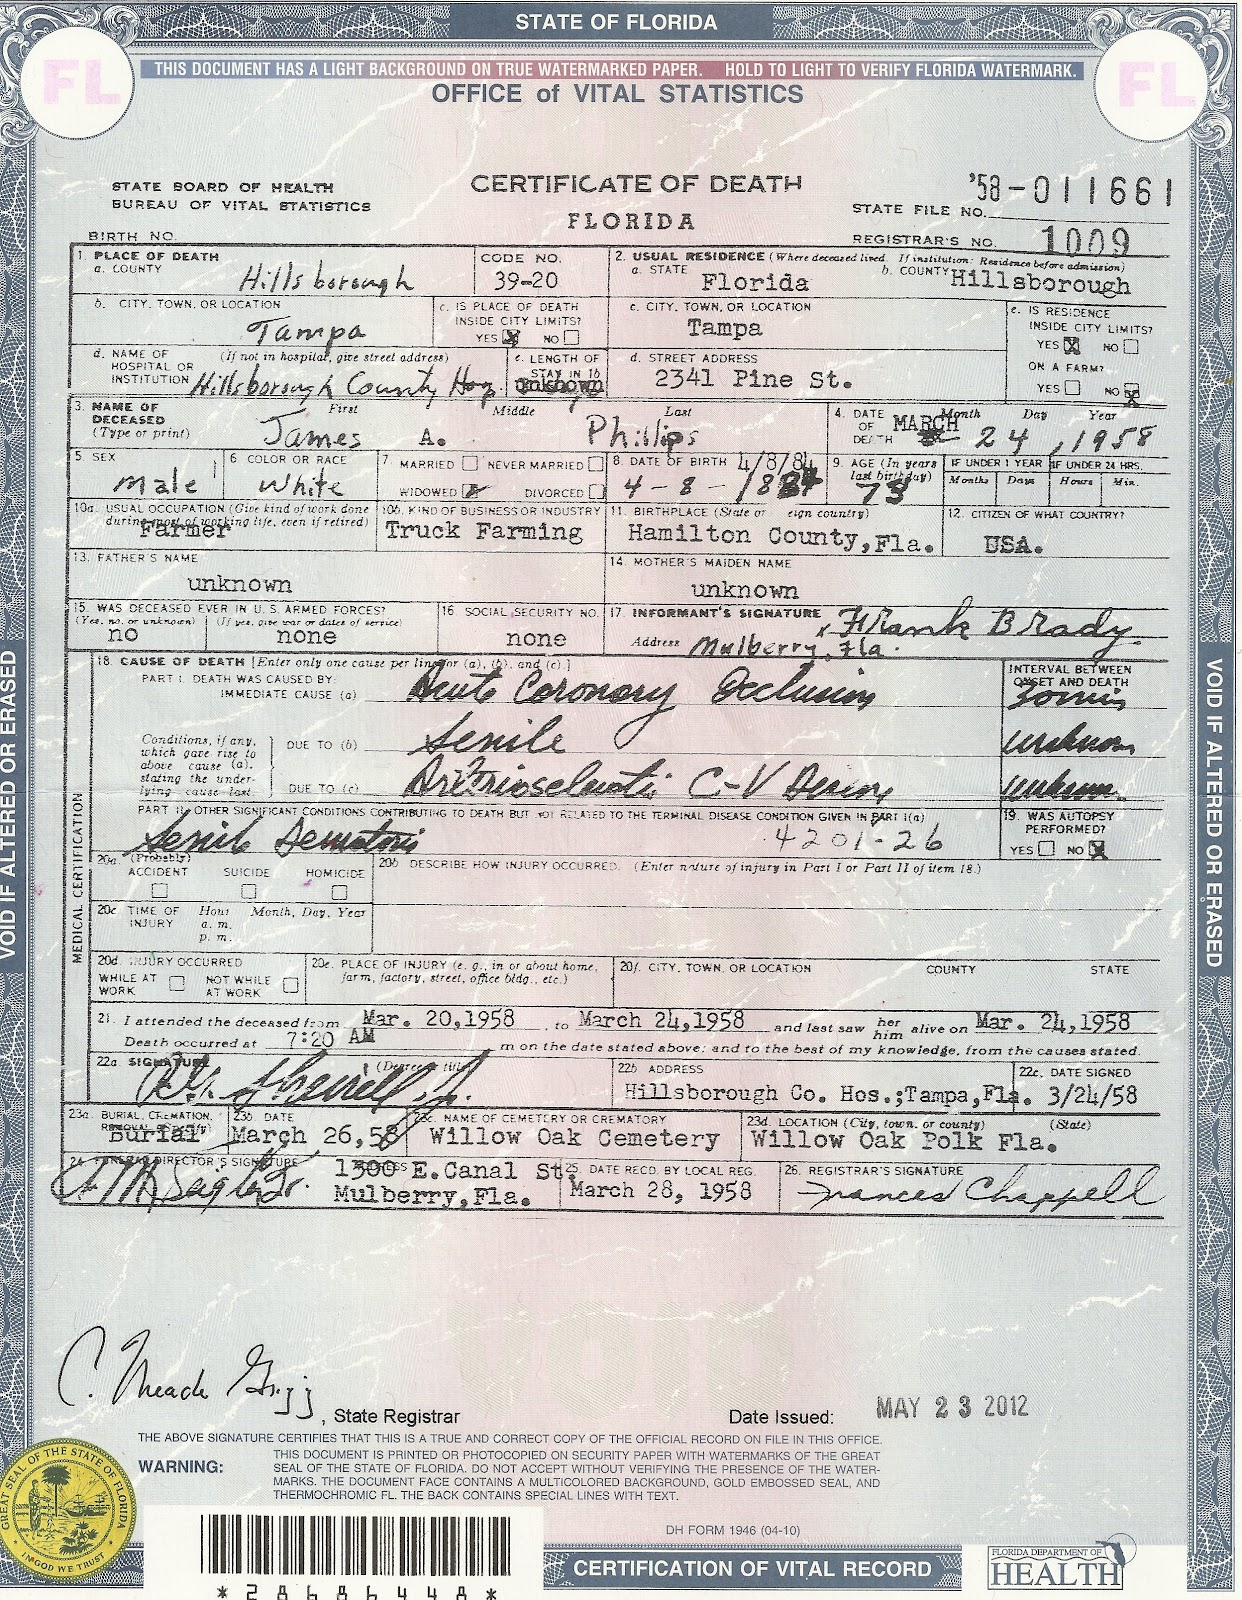 STATE OF FLORIDA
FL
FL
THIS DOCUMENT HAS A LIGHT BACKGROUND ON TRUE WATERMARKED PAPER. HOLD TO LIGHT TO VERIFY FLORIDA WATERMARK.
OFFICE of VITAL STATISTICS
STATE BOARD OF HEALTH
BUREAU OF VITAL STATISTICS
CERTIFICATE OF DEATH
FLORIDA
STATE FILE NO. '58-011661
REGISTRAR'S NO. 1009
BIRTH NO.
1. PLACE OF DEATH
a. COUNTY Hillsborough
CODE NO.
39-20
2. USUAL RESIDENCE (Where deceased lived. If institution: Residence before admission)
a. STATE Florida
b. COUNTY Hillsborough
b. CITY, TOWN, OR LOCATION
Tampa
c. IS PLACE OF DEATH
INSIDE CITY LIMITS?
YES NO
c. CITY, TOWN, OR LOCATION
Tampa
e. IS RESIDENCE
INSIDE CITY LIMITS?
YES NO
d. NAME OF HOSPITAL OR INSTITUTION (If not in hospital, give street address)
Hillsborough County
e. LENGTH OF
STAY IN 1b
unknown
d. STREET ADDRESS
2341 Pine St.
ON A FARM?
YES NO
3. NAME OF DECEASED (Type or print)
First Middle Last
James A. Phillips
4. DATE OF DEATH
Month Day Year
MARCH 24, 1958
5. SEX
Male
6. COLOR OR RACE
White
7. MARRIED NEVER MARRIED
WIDOWED DIVORCED
8. DATE OF BIRTH 4/8/84
4-8-
9. AGE (In years last birthday)
73
IF UNDER 1 YEAR
Months Days
IF UNDER 24 HRS.
Hours Min.
10a. USUAL OCCUPATION (Give kind of work done during most of working life, even if retired)
Farmer
10b. KIND OF BUSINESS OR INDUSTRY
Truck Farming
11. BIRTHPLACE (State or eign country)
Hamilton County, Fla.
12. CITIZEN OF WHAT COUNTRY?
USA.
13. FATHER'S NAME
unknown
14. MOTHER'S MAIDEN NAME
unknown
15. WAS DECEASED EVER IN U.S. ARMED FORCES?
(Yes, no, or unknown) (If yes, give war or dates of service)
no none
16. SOCIAL SECURITY NO.
none
17. INFORMANT'S SIGNATURE
x Frank Brady
Address Mulberry, Fla.
18. CAUSE OF DEATH [Enter only one cause per line for (a), (b), and (c).]
PART I. DEATH WAS CAUSED BY:
IMMEDIATE CAUSE (a) Acute Coronary Occlusion
INTERVAL BETWEEN
ONSET AND DEATH
Conditions, if any, which gave rise to above cause (a), stating the underlying cause last.
DUE TO (b) Senile
unknown
DUE TO (c) C-V
unknown
PART II. OTHER SIGNIFICANT CONDITIONS CONTRIBUTING TO DEATH BUT NOT RELATED TO THE TERMINAL DISEASE CONDITION GIVEN IN PART I(a)
4201-26
19. WAS AUTOPSY
PERFORMED?
YES NO
MEDICAL CERTIFICATION
20a. (Probably)
ACCIDENT SUICIDE HOMICIDE
20b. DESCRIBE HOW INJURY OCCURRED. (Enter nature of injury in Part I or Part II of item 18.)
20c. TIME OF INJURY Hour Month, Day, Year
a. m.
p. m.
20d. INJURY OCCURRED
WHILE AT WORK NOT WHILE AT WORK
20e. PLACE OF INJURY (e. g., in or about home, farm, factory, street, office bldg., etc.)
20f. CITY, TOWN, OR LOCATION COUNTY STATE
21. I attended the deceased from Mar. 20,1958, to March 24,1958 and last saw her him alive on Mar. 24,1958
Death occurred at 7:20 AM m on the date stated above; and to the best of my knowledge, from the causes stated.
22a. SIGNATURE (Degree or title)
22b. ADDRESS
Hillsborough Co. Hos.;Tampa,Fla.
22c. DATE SIGNED
3/24/58
23a. BURIAL, CREMATION, REMOVAL (Specify)
Burial
23b. DATE
March 26,58
23c. NAME OF CEMETERY OR CREMATORY
Willow Oak Cemetery
23d. LOCATION (City, town, or county) (State)
Willow Oak Polk Fla.
24. FUNERAL DIRECTOR'S SIGNATURE
1300 E.Canal St.
Mulberry,Fla.
25. DATE RECD. BY LOCAL REG.
March 28, 1958
26. REGISTRAR'S SIGNATURE
Frances Chappell
C. Meade Grigg
, State Registrar
Date Issued: MAY 23 2012
THE ABOVE SIGNATURE CERTIFIES THAT THIS IS A TRUE AND CORRECT COPY OF THE OFFICIAL RECORD ON FILE IN THIS OFFICE.
WARNING: THIS DOCUMENT IS PRINTED OR PHOTOCOPIED ON SECURITY PAPER WITH WATERMARKS OF THE GREAT
SEAL OF THE STATE OF FLORIDA. DO NOT ACCEPT WITHOUT VERIFYING THE PRESENCE OF THE WATER-
MARKS. THE DOCUMENT FACE CONTAINS A MULTICOLORED BACKGROUND, GOLD EMBOSSED SEAL, AND
THERMOCHROMIC FL. THE BACK CONTAINS SPECIAL LINES WITH TEXT.
DH FORM 1946 (04-10)
CERTIFICATION OF VITAL RECORD
FLORIDA DEPARTMENT OF
HEALTH
GREAT SEAL OF THE STATE OF FLORIDA
IN GOD WE TRUST
*28686448*
VOID IF ALTERED OR ERASED
VOID IF ALTERED OR ERASED